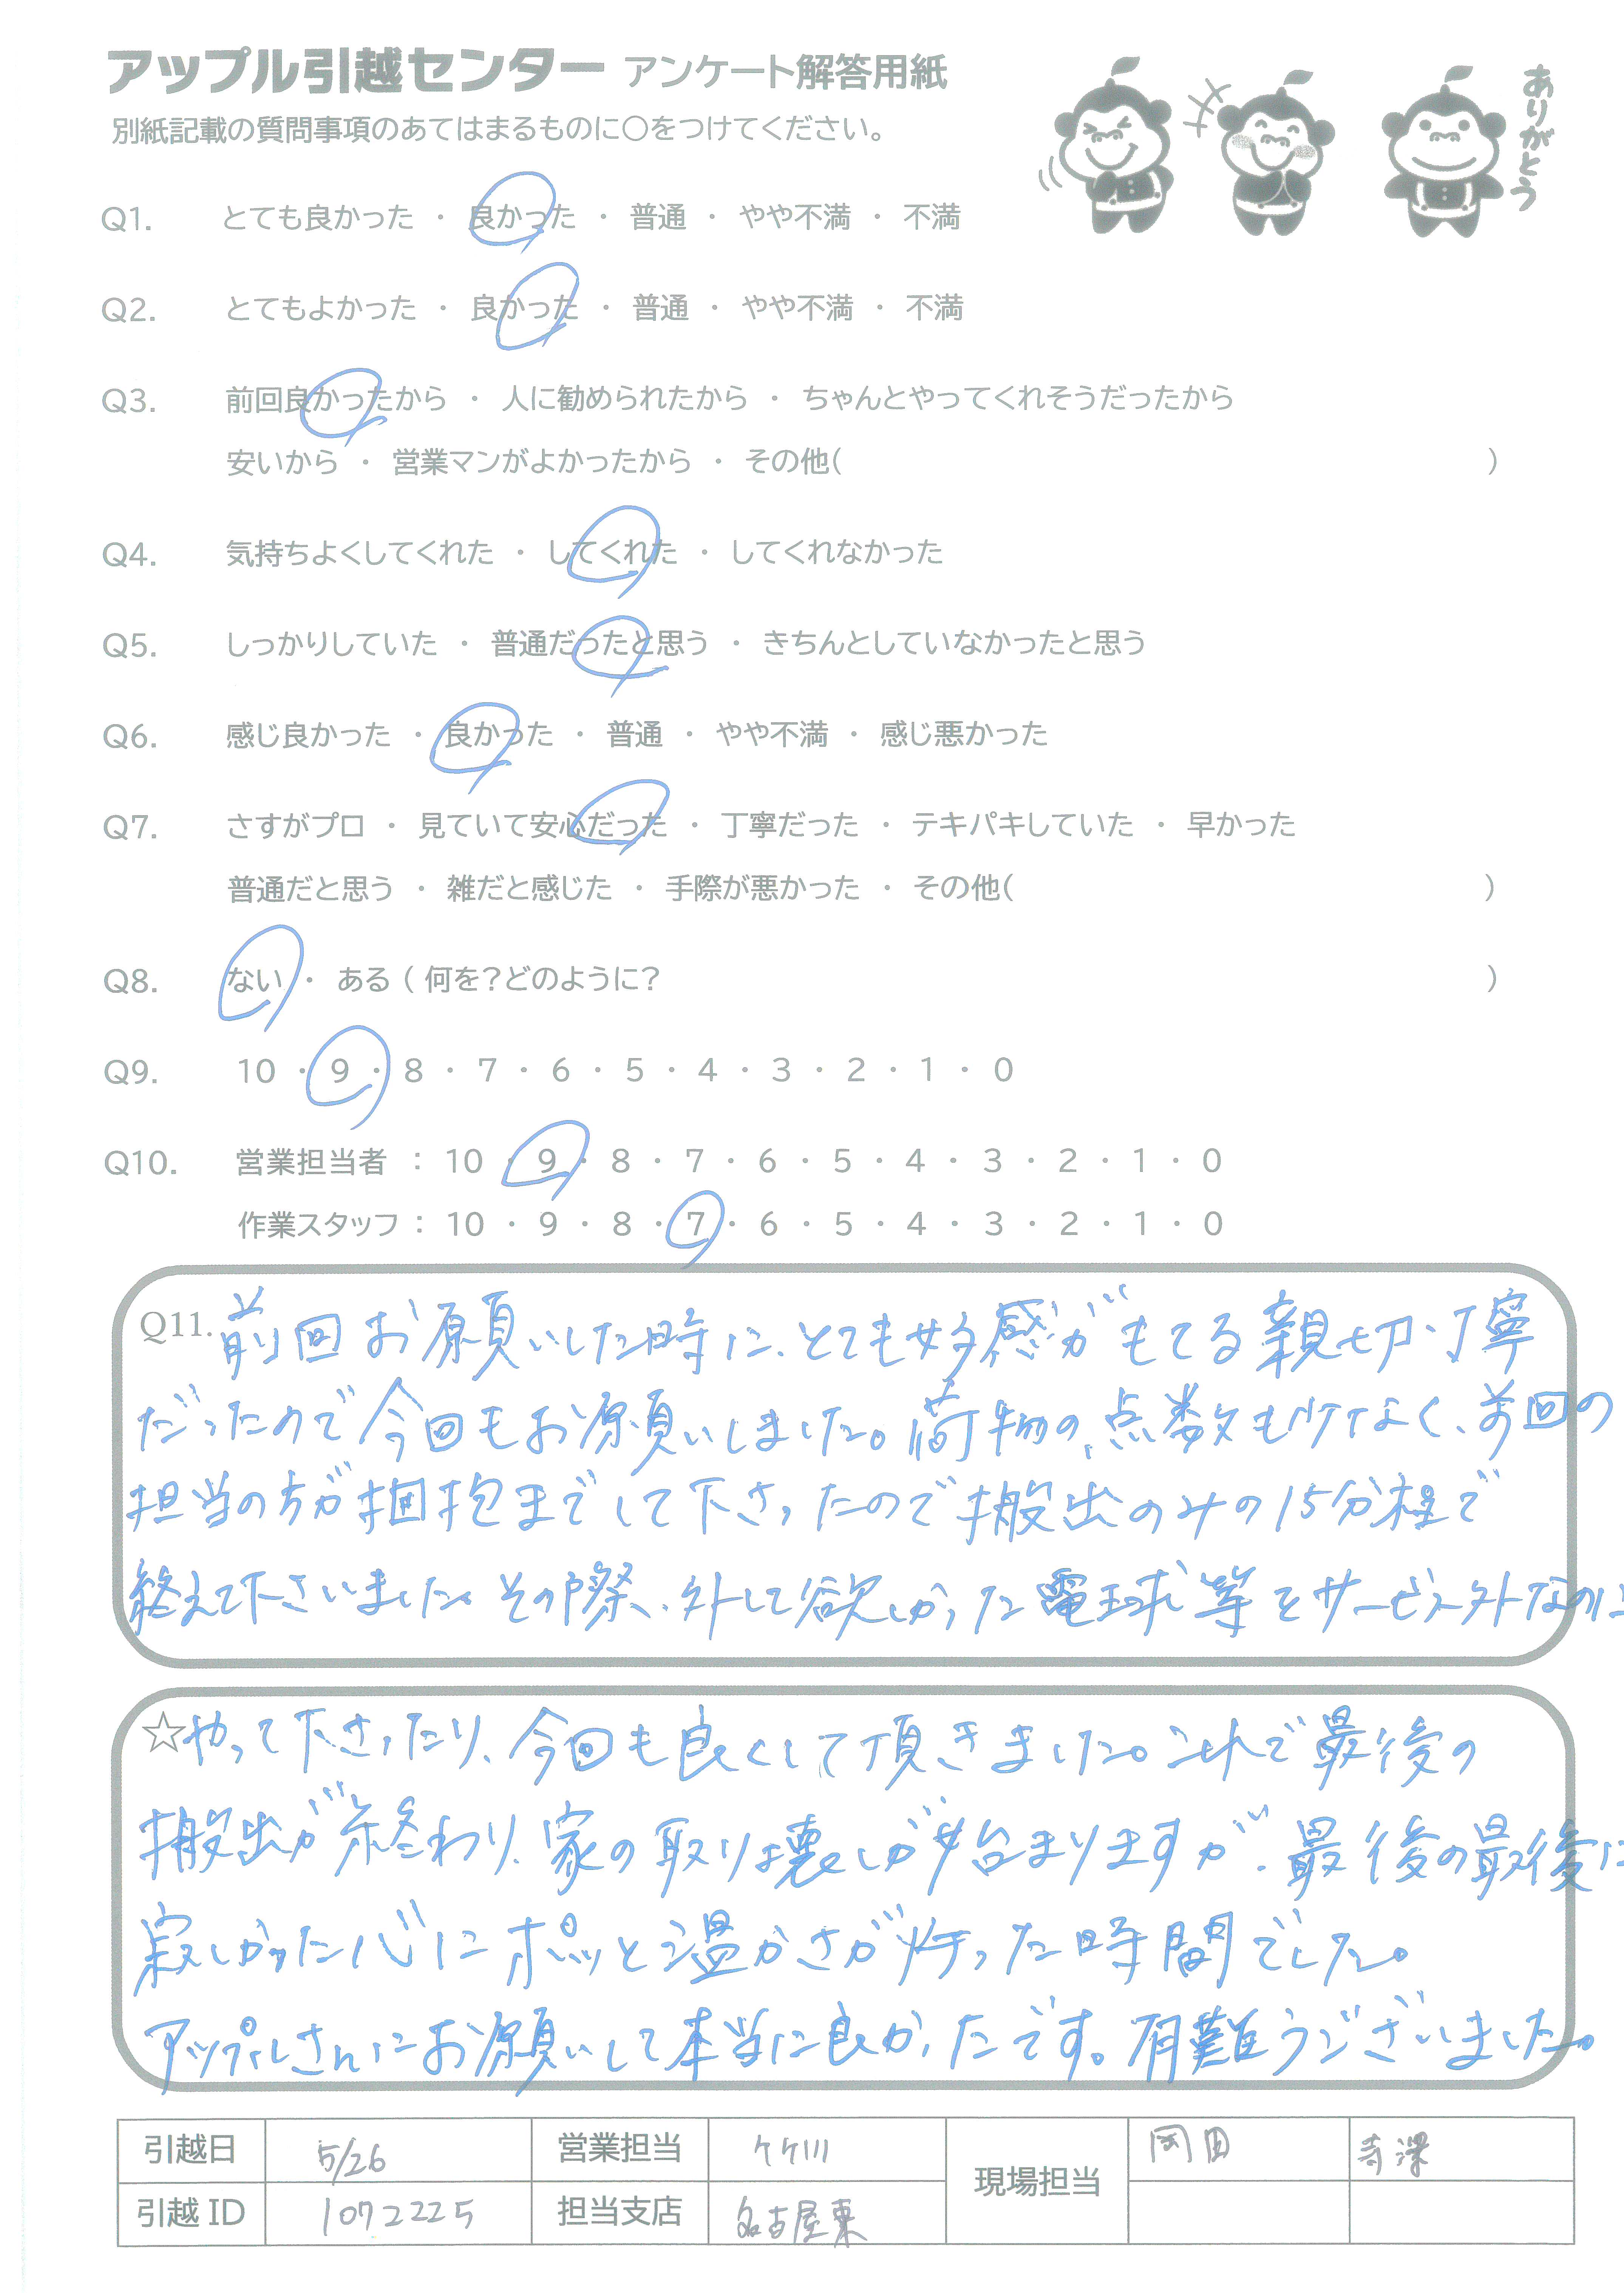 アップル引越センター アンケート解答用紙
ありがとう
別紙記載の質問事項のあてはまるものに○をつけてください。
Q1. とても良かった ・ 良かった ・ 普通 ・ やや不満 ・ 不満
Q2. とてもよかった ・ 良かった ・ 普通 ・ やや不満 ・ 不満
Q3. 前回良かったから ・ 人に勧められたから ・ ちゃんとやってくれそうだったから
安いから ・ 営業マンがよかったから ・ その他( )
Q4. 気持ちよくしてくれた ・ してくれた ・ してくれなかった
Q5. しっかりしていた ・ 普通だったと思う ・ きちんとしていなかったと思う
Q6. 感じ良かった ・ 良かった ・ 普通 ・ やや不満 ・ 感じ悪かった
Q7. さすがプロ ・ 見ていて安心だった ・ 丁寧だった ・ テキパキしていた ・ 早かった
普通だと思う ・ 雑だと感じた ・ 手際が悪かった ・ その他( )
Q8. ない ・ ある ( 何を?どのように? )
Q9. 10 ・ 9 ・ 8 ・ 7 ・ 6 ・ 5 ・ 4 ・ 3 ・ 2 ・ 1 ・ 0
Q10. 営業担当者 : 10 ・ 9 ・ 8 ・ 7 ・ 6 ・ 5 ・ 4 ・ 3 ・ 2 ・ 1 ・ 0
作業スタッフ : 10 ・ 9 ・ 8 ・ 7 ・ 6 ・ 5 ・ 4 ・ 3 ・ 2 ・ 1 ・ 0
Q11. 前回お願いした時に、とても好感がもてる親切・丁寧
だったので今回もお願いしました。荷物の点数も少なく、前回の
担当の方が梱包までして下さったので搬出のみの15分程で
終えて下さいました。その際、外して欲しかった電球等をサービス外なのに
☆やって下さったり、今回も良くして頂きました。これで最後の
搬出が終わり、家の取り壊しが始まりますが、最後の最後に
寂しかった心にポッと温かさが灯った時間でした。
アップルさんにお願いして本当に良かったです。有難うございました。
引越日 5/26 営業担当 現場担当 岡田 寺澤
引越 ID 1072225 担当支店 名古屋東